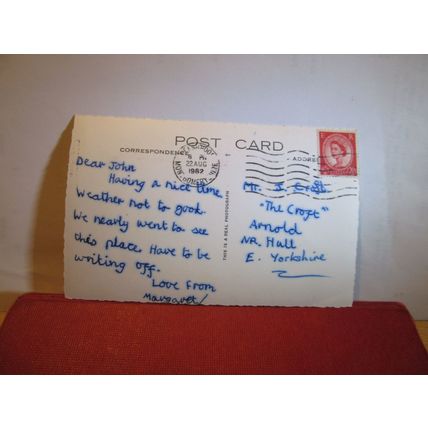 POST CARD
CORRESPONDENCE
ADDRESS
22 AUG
1962
Dear John
Having a nice time.
Weather not to good.
We nearly went to see
this place. Have to be
writing off.
Love From
Margaret
THIS IS A REAL PHOTOGRAPH
Mr. J. Croft
"The Croft"
Arnold
NR. Hull
E. Yorkshire